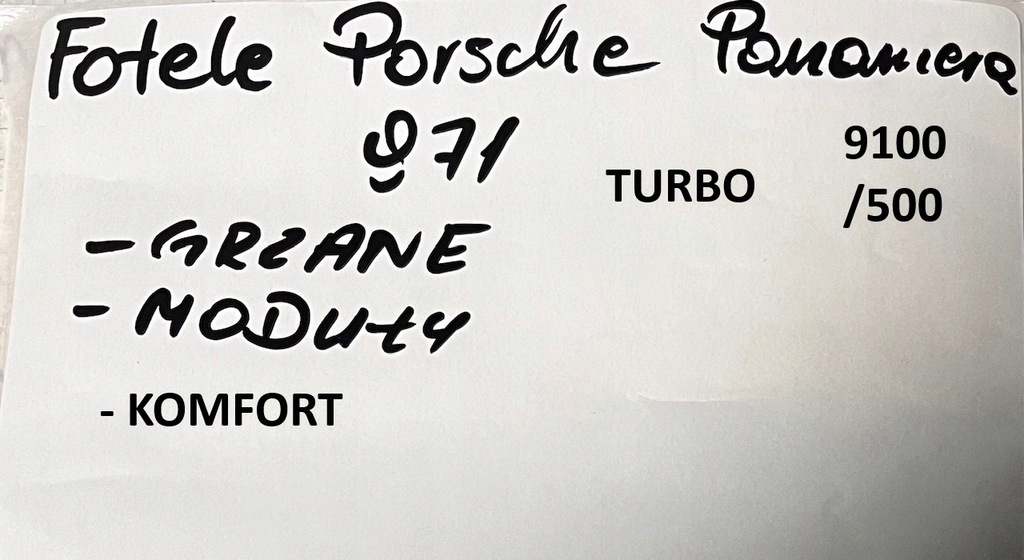 Fotele Porsche Panamiera
971
TURBO
9100
/500
- GRZANE
- MODUŁY
- KOMFORT